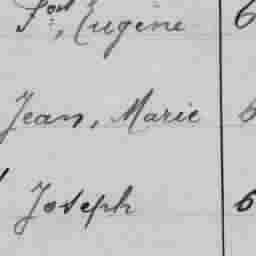 Eugène 6
Jean, Marie
Joseph 6